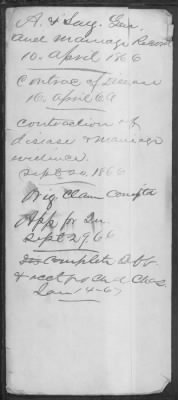 A. & Surg. Gen.
and Marriage Record
10. April 1866
Contrac of Disease
16. April 66
contraction of
disease & marriage
evidence.
Sept 20. 1866
Orig Claim Compltd
App for In.
Sept 29 66
Complete
& acct for Chas
Jan 14-67